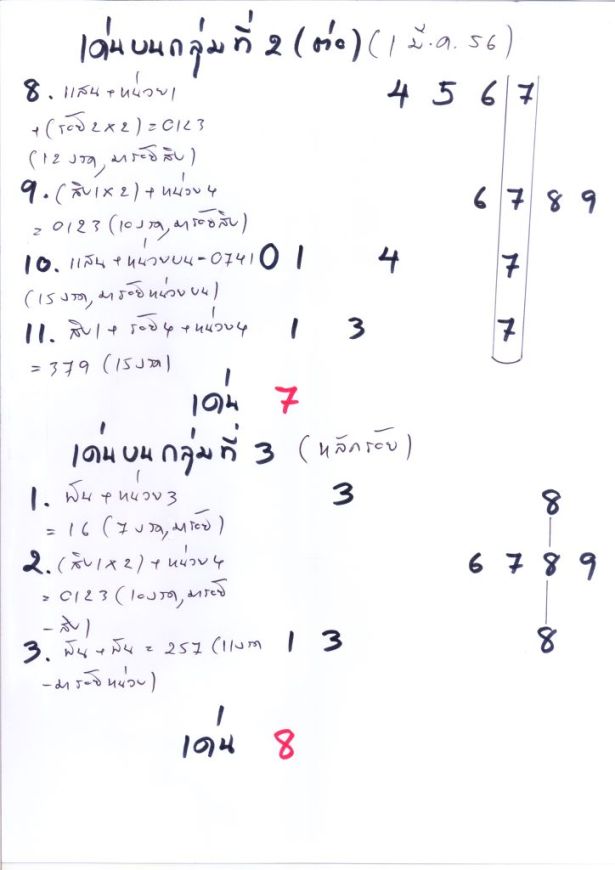 เด่นบนกลุ่มที่ 2 (ต่อ) (1 มี.ค. 56)
8. แสน+หน่วย1 4 5 6 7
+(ร้อย2x2)=0123
(12งวด,มาร้อยสิบ)
9. (สิบ1x2)+หน่วย4 6 7 8 9
=0123(10งวด,มาร้อยสิบ)
10. แสน+หน่วยบน-0741 0 1 4 7
(15งวด,มาร้อยหน่วยบน)
11. สิบ1+ร้อย4+หน่วย4 1 3 7
=379 (15งวด)
เด่น 7
เด่นบนกลุ่มที่ 3 (หลักร้อย)
1. พัน+หน่วย3 3 8
=16 (7งวด,มาร้อย)
2. (สิบ1x2)+หน่วย4 6 7 8 9
=0123(10งวด,มาร้อย
-สิบ)
3. พัน+พัน=257(11งวด 1 3 8
-มาร้อยหน่วย)
เด่น 8